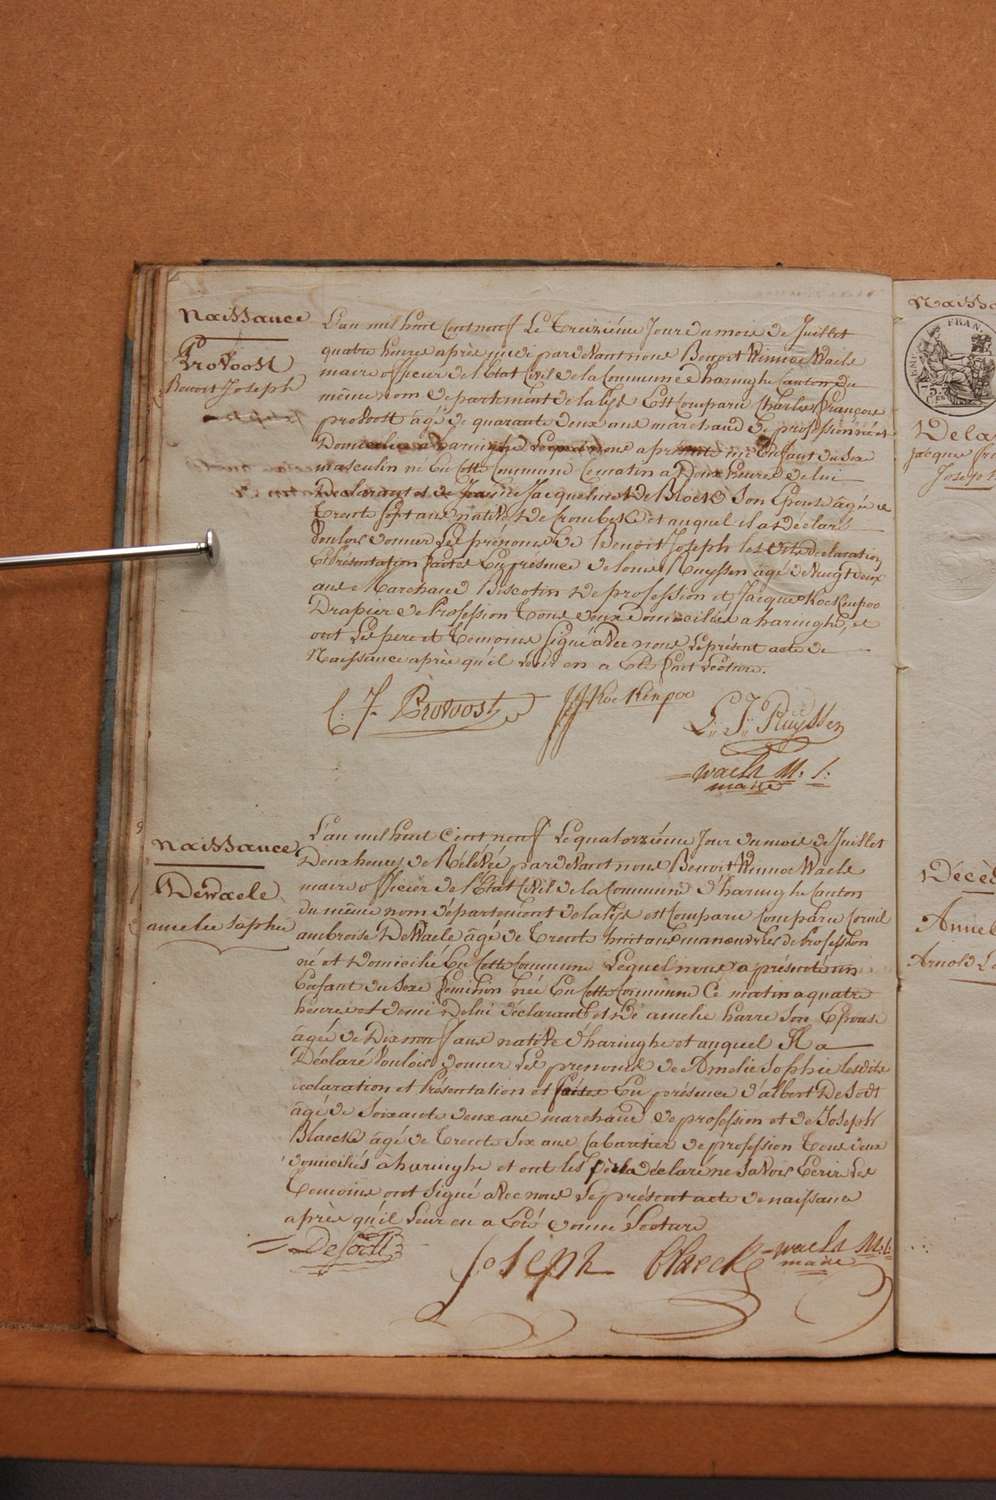 Naissance
Provoost
Benoit Joseph
L'an mil huit Cent neuf Le treizième Jour du mois de Juillet
quatre heures après midi pardevant nous Benoit Winnoc Waels
maire officier de l'Etat Civil de la Commune d'haringhe Canton du
même nom departement de la Lys Est Comparu Charles François
provoost agé de quarante deux ans marchand de profession né et
Domicilié a haringhe Lequel nous a présenté un Enfant du Sexe
masculin né En Cette Commune Ce matin a Deux heures de lui
Declarant et de Jacqueline De Block Son Epouse agée de
trente Sept ans native de Crombeke et auquel il a déclaré
Vouloir donner Les prénoms de Benoit Joseph les dites declaration
et présentation faites En présence de Louis Ruyssen agé de vingt deux
ans Marchand De profession et Jacques Kockenpoo
Drapier de Profession tous deux domiciliés a haringhe, et
ont Les père et témoins Signé avec nous Le présent acte de
Naissance après qu'il Leur en a été fait Lecture.
C. J. Provoost
Kockenpoo
L. J. Ruyssen
Waels M. S.
maire
Naissance
Dewaele
amelie Sophie
L'an mil huit Cent neuf Le quatorzième Jour du mois de Juillet
Deux heures de Relevée pardevant nous Benoit Winnoc Waels
maire officier de l'Etat Civil de la Commune d'haringhe Canton
du même nom departement de la Lys est Comparu Comparu Corneil
ambroise DeWaele âgé de trente huit ans manouvrier de Profession
né et Domicilié En Cette Commune Lequel nous a présenté un
Enfant du Sexe Feminin née En Cette Commune Ce matin a quatre
heures et demi de lui déclarant et de amelie harre Son Epouse
agée de Dix neuf ans native d'haringhe et auquel Il a
Déclaré Vouloir donner Les prenoms de Amelie Sophie Les dites
déclaration et Présentation et faites En présence d'albert DeSodt
âgé de Soixante deux ans marchand de profession et de Joseph
Blaeck âgé de trente Six ans Cabaretier de profession tous deux
domiciliés à haringhe et ont les père declaré ne Savoir Ecrir Les
témoins ont Signé avec nous Le présent acte de naissance
après qu'il Leur en a été donné Lecture
DeSodt
Joseph Blaeck
Waels M. S.
maire
Naissa
FRAN.
Dela
jacque fra
Joseph
Décès
Annel
Arnold Lo